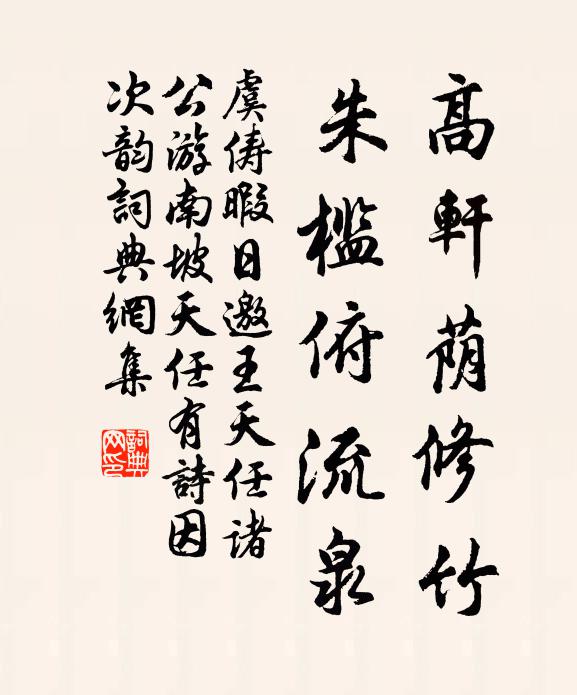 高軒荫修竹
朱槛俯流泉
虞俦暇日邀王天任诸
公游南坡天任有詩因
次韵詞典網集
詞典网印